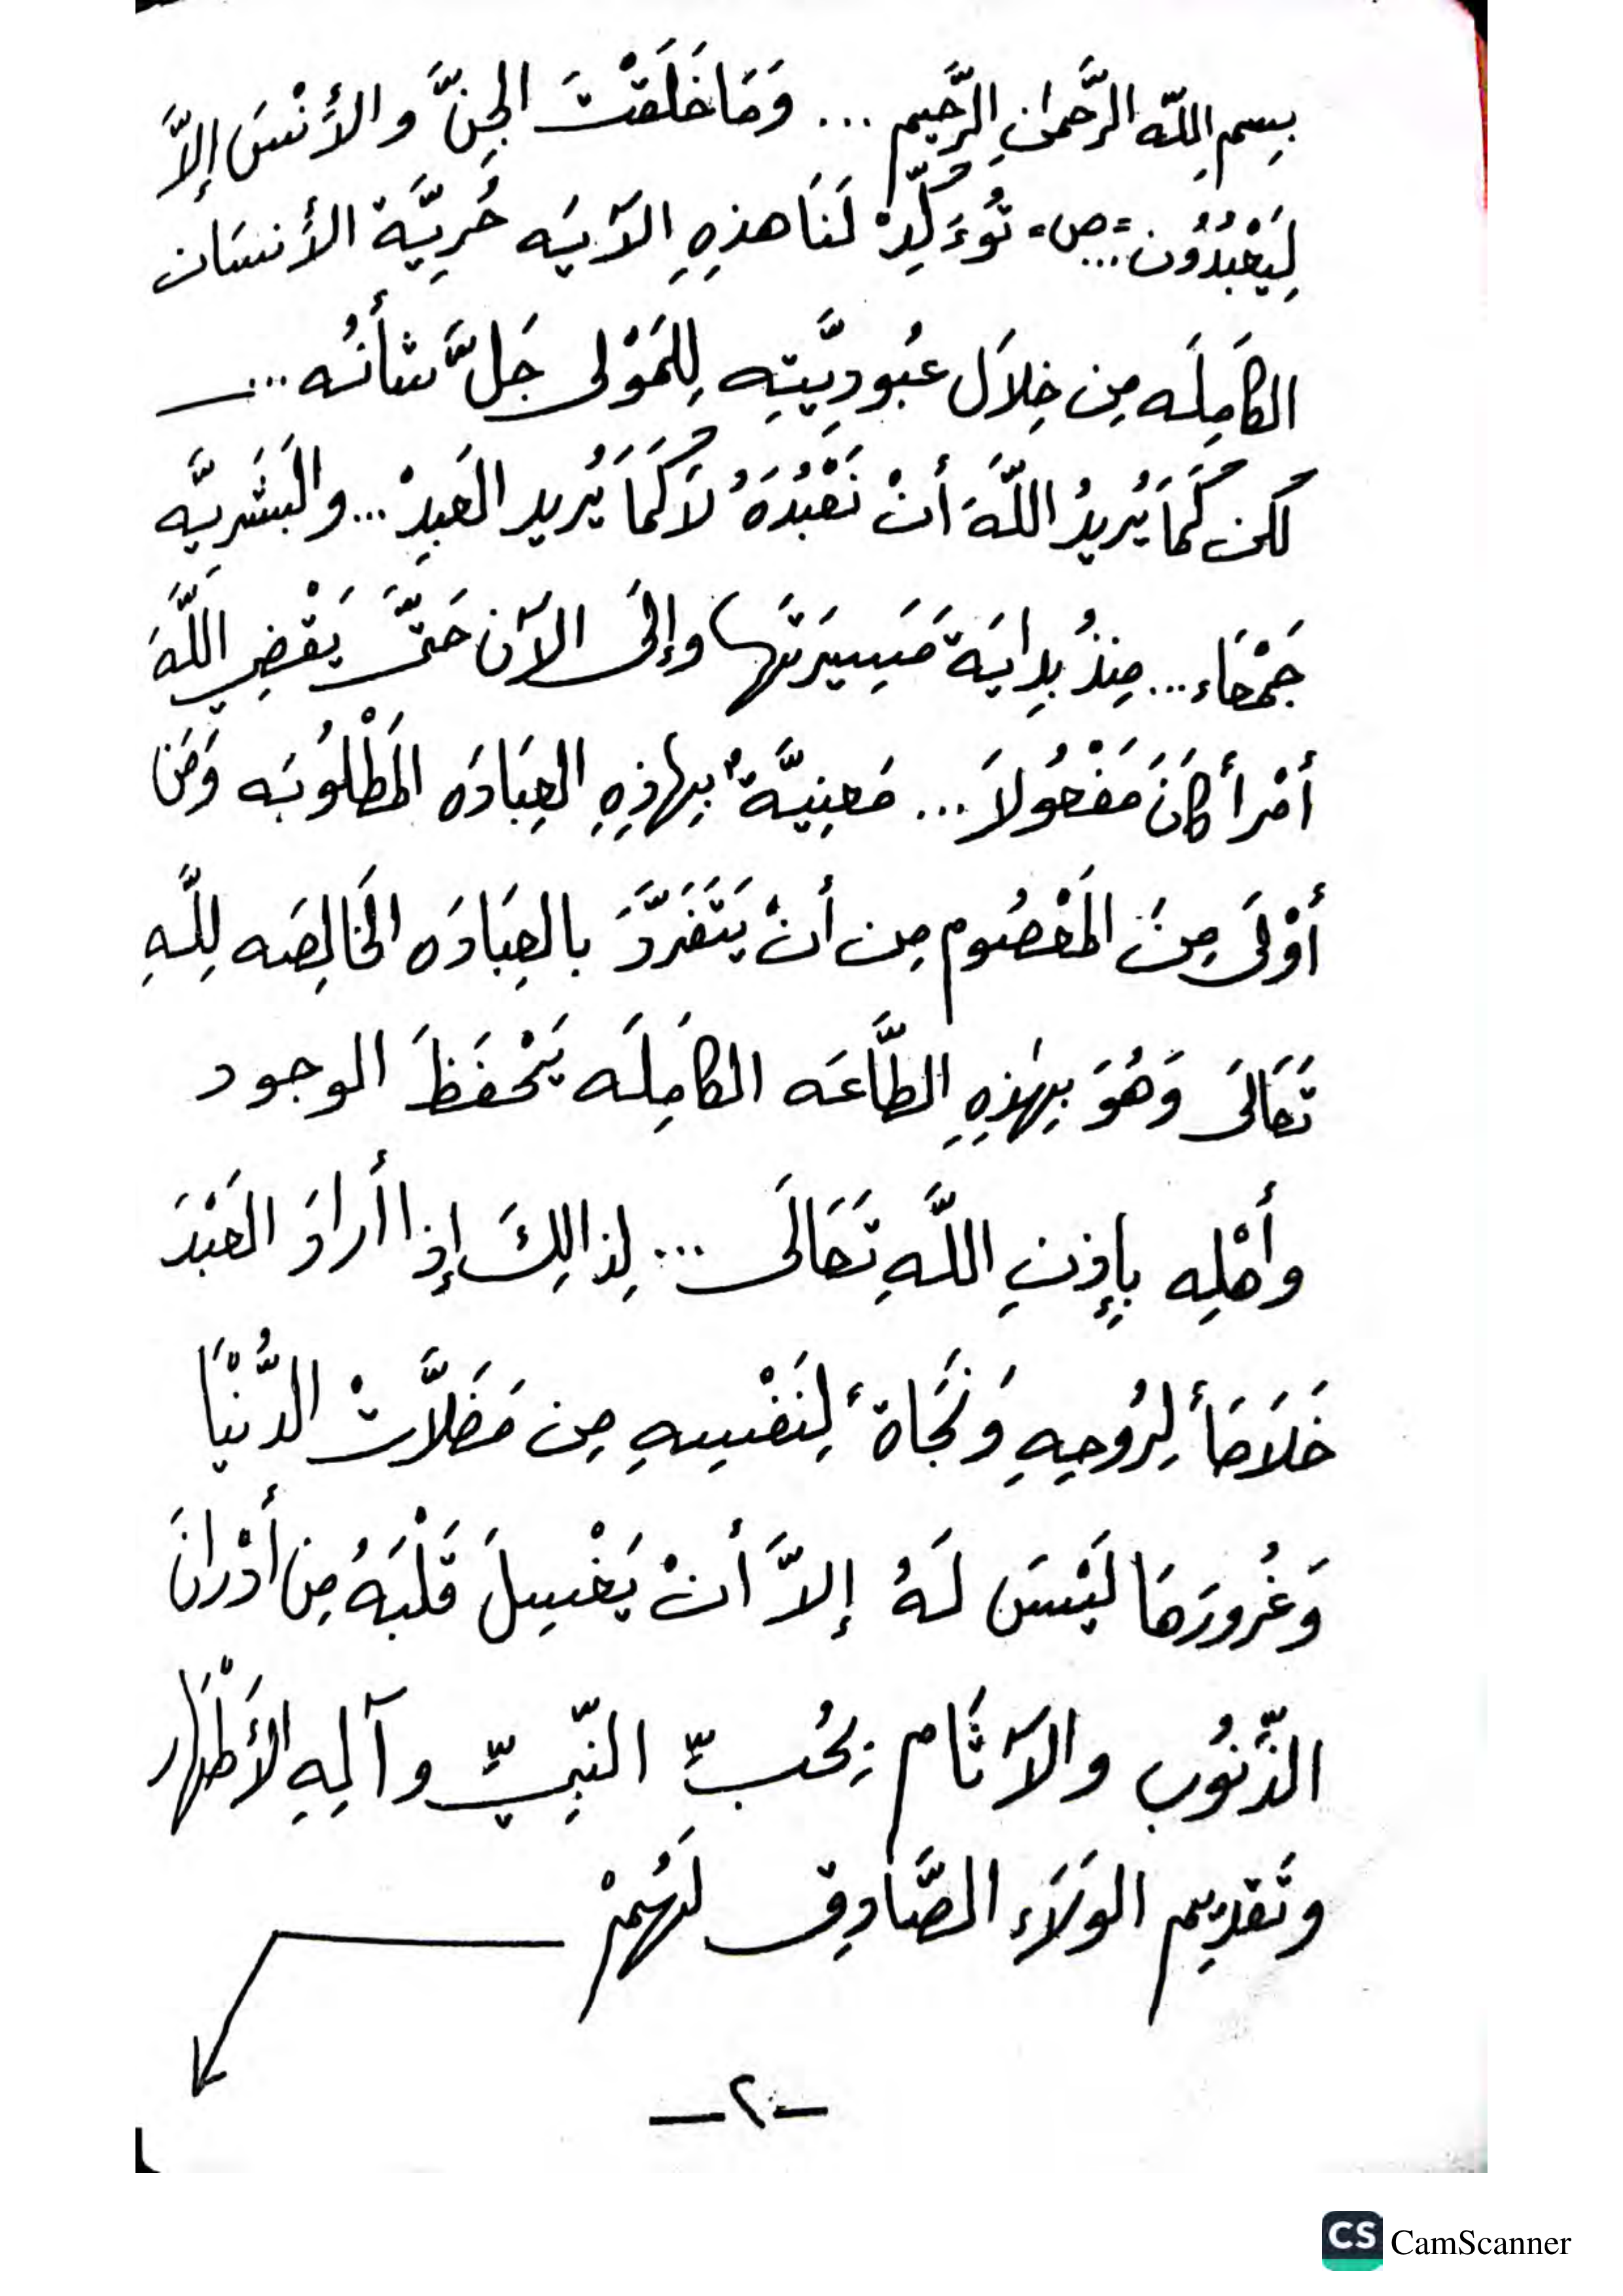 بِسمِ اللّه الرَّحمنِ الرَّحِيم ... وَمَا خَلَقْتَ الجِنَّ و الأَنْسَ إلاَّ
لِيَعْبُدُون ... =ص= تُوءَكِّدْ لَنَا هذِهِ الآيَه حُرِيَّة الأَنسَان
الكَامِلَه مِن خِلاَل عُبُودِيَّتِهِ لِلمَوْلى جَلَّ شأنُه ...
لكن كَمَا يُرِيدُ اللّهَ أنْ نَعْبُدَهُ لاَ كَمَا يُرِيد العَبدِْ ... والبَشَرِيَّه
جَمْعَاء ... مِنذُ بِدايَة مَسِيرَتَها وإلىَ الآن حَتَّى يَقْضِي اللَّهَ
أمْراً كَانَ مَفْعُولاَ ... مَعنِيَّةٌ بِهاذِهِ العِبَادَه المَطْلُوبَه وَمَن
أوْلَى مِنَ المَعْصُوم مِن أنْ يَتَفَرَّدَ بالعِبَادَه الخَالِصَه لِلَّهِ
تَعَالَى وَهُوَ بِهٰذِهِ الطَّاعَه الكَامِلَه يَحْفَظَ الوجود
وأَهْلِه بِإِذنِ اللَّهِ تَعَالَى ... لِذالِكَ إذا أرادَ العَبْدَ
خَلاَصَاً لِرُوحِهِ وَنَجَاةً لِنَفْسِهِ مِن مَضَلاَّتْ الدُّنْيَا
وَغُرورَهَا لَيْسَ لَهُ إلاَّ أنْ يَغْسِلَ قَلْبَهُ مِن أدْرانَ
الذُّنُوب والآثَام بِحُبِّ النَّبِيِّ وآلِهِ الأَطْهَار
وتَقدِيم الوَلاَء الصَّادِق لَهُمْ
ـ ٢ ـ
CS CamScanner